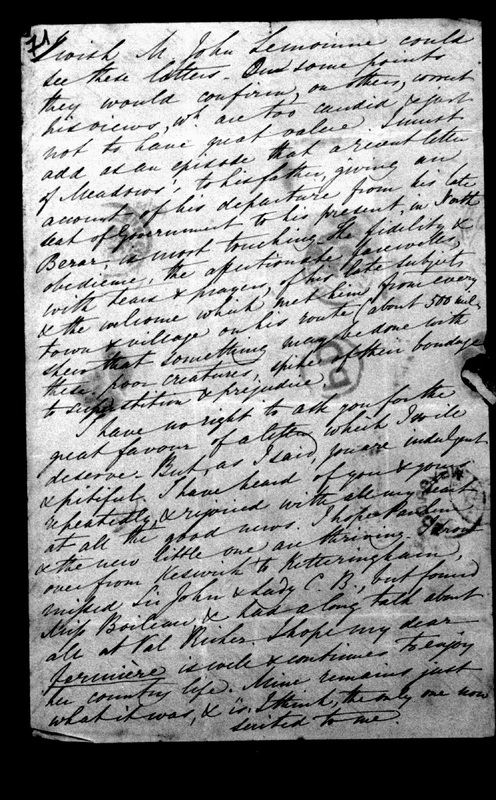 71
I wish M. John Lemoinne could
see these letters - On some points
they would confirm, on others, correct
his views, wh. are too candid & just
not to have great value. I must
add as an episode that a recent letter
of Meadows' to his father, giving an
account of his departure from his late
seat of Government to his present in North
Berar is most touching. The fidelity &
obedience, the affectionate farewells,
with tears & prayers, of his late subjects
& the welcome which met him from every
town & village on his route (about 500 miles
shew that something may be done with
these poor creatures, spite of their bondage
to superstition & prejudice.
I have no right to ask you for the
great favour of a letter, which I will
deserve - But, as I said, you are indulgent
& pitiful. I have heard of you & yours
repeatedly, & rejoiced with all my heart
at all the good news. I hope Pauline
& the new little one are thriving. I
over from Keswick to Ketteringham,
missed Sir John & Lady C. B., but found
Miss Boileau, & had a long talk about
all at Val Richer. I hope my dear
fermière is well & continues to enjoy
her country life. Mine remains just
what it was, & is, I think, the only one now
suited to me.
PD